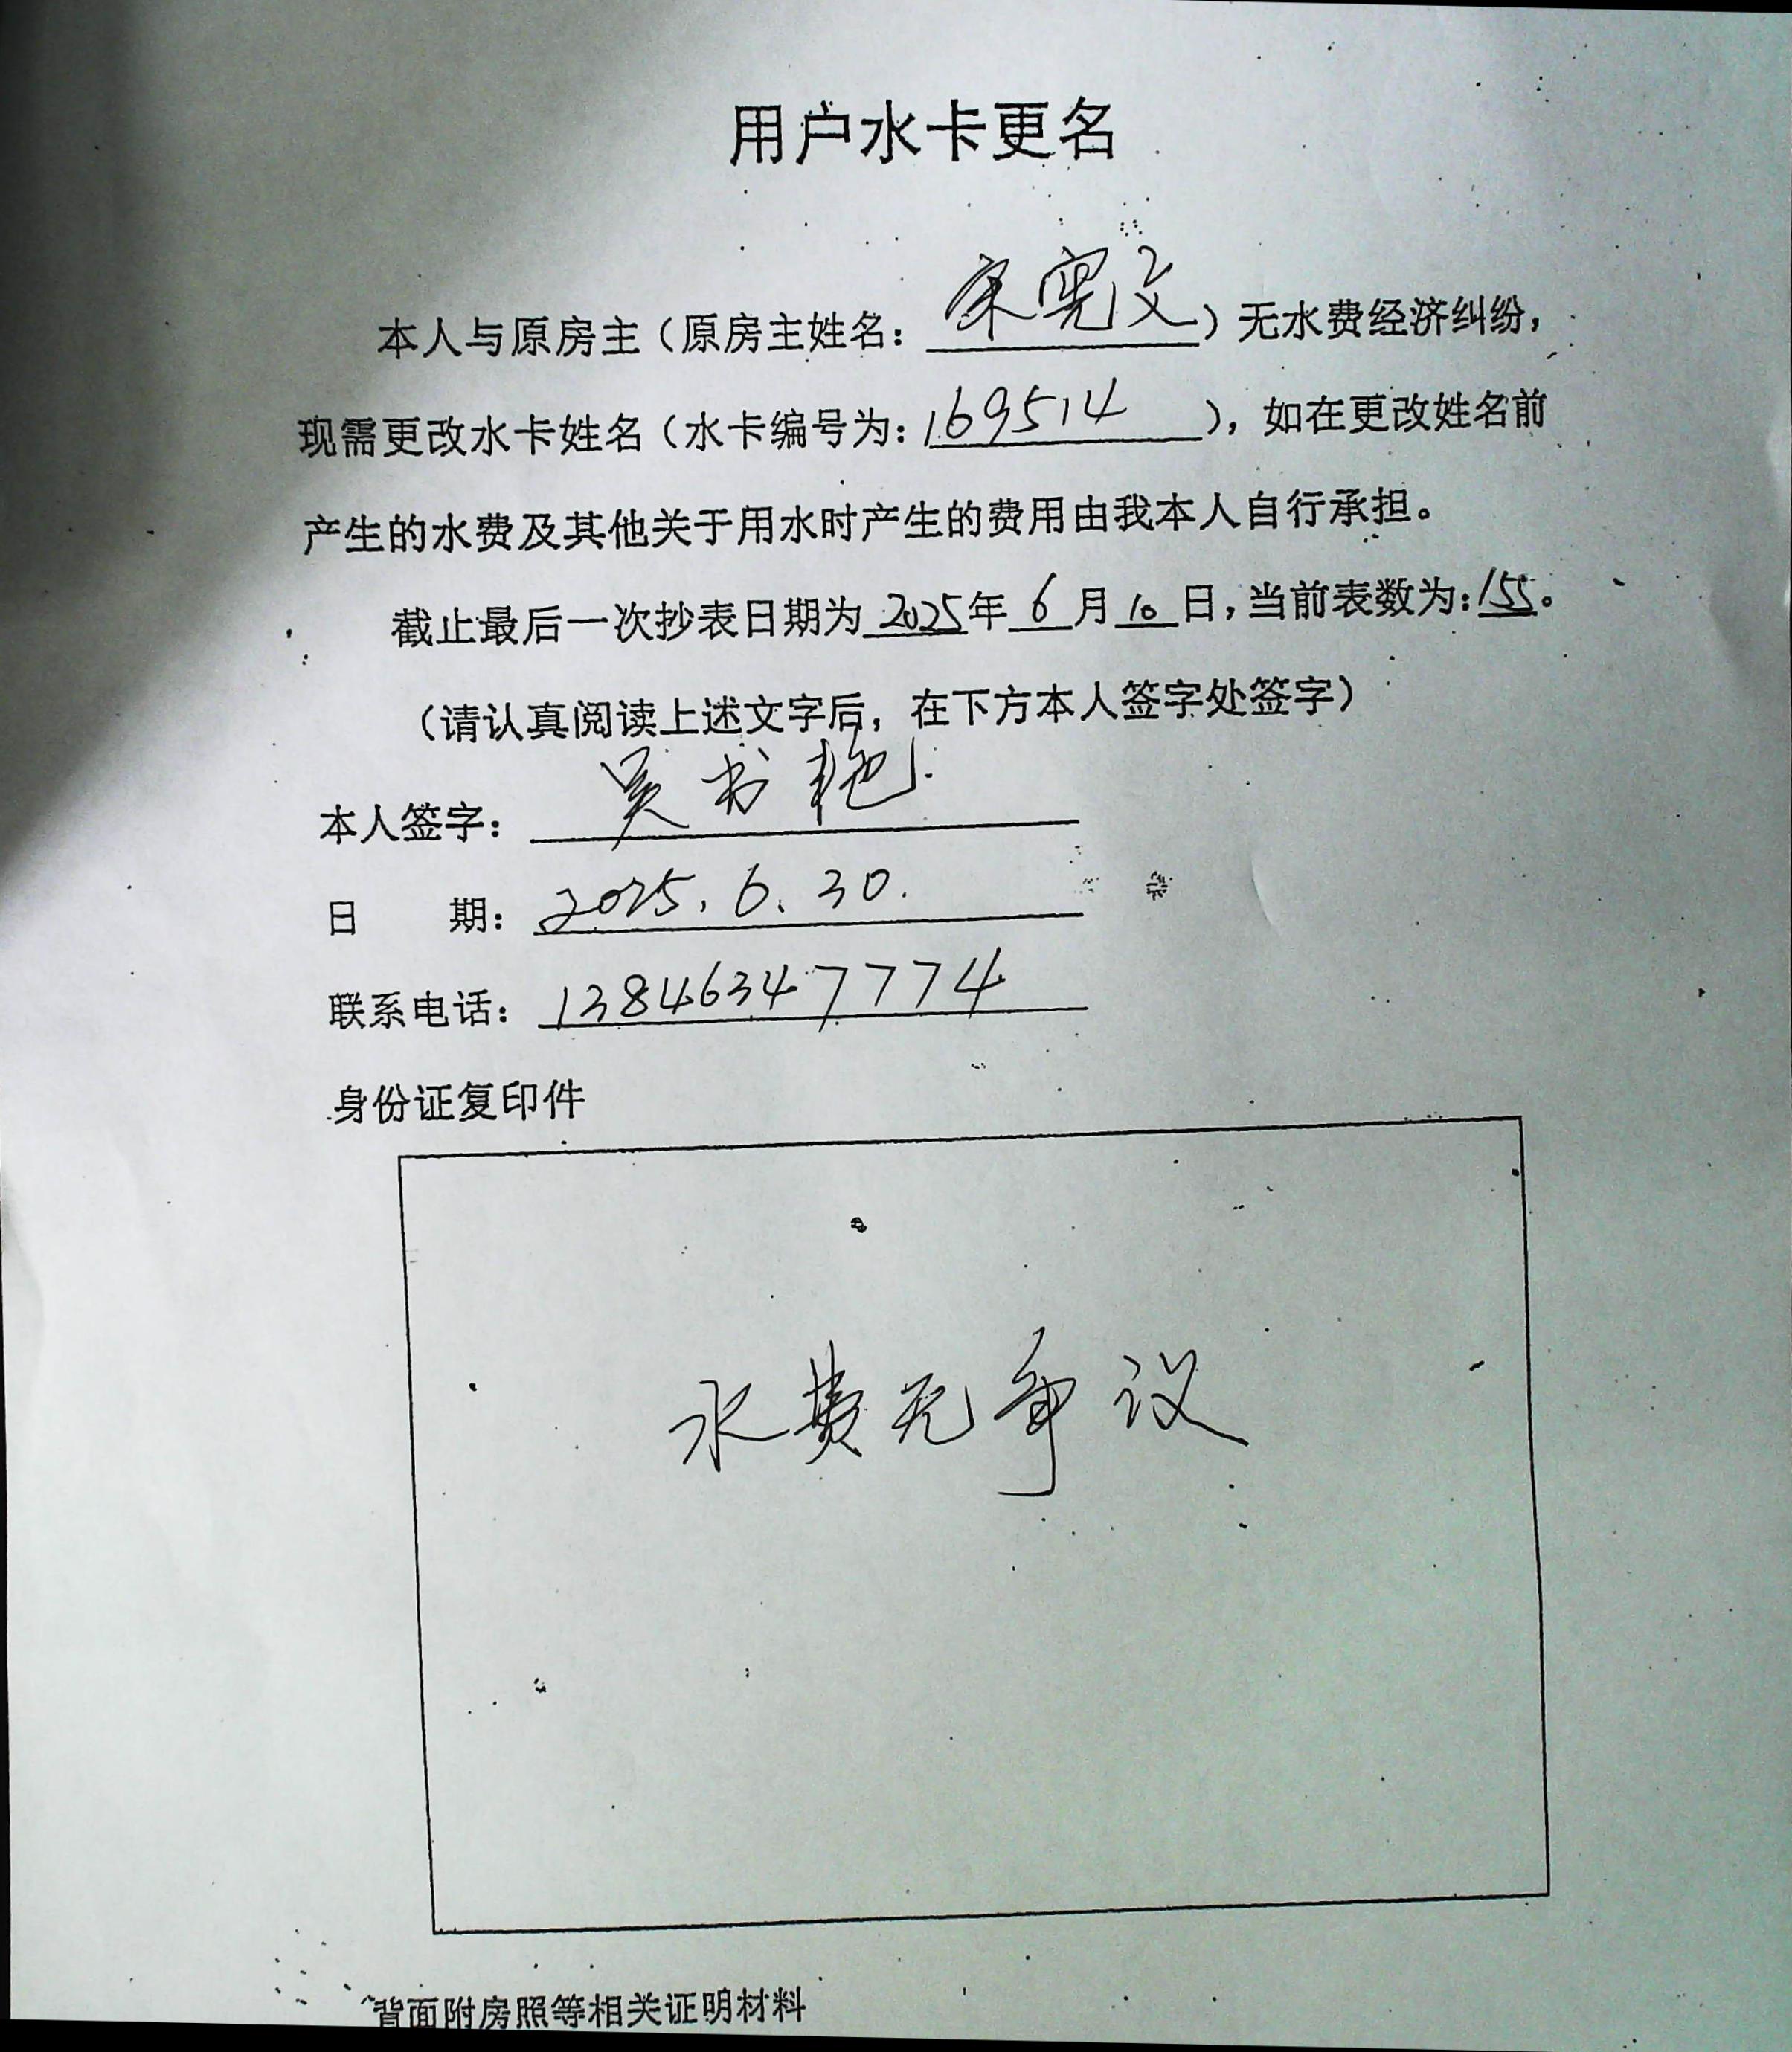 用户水卡更名
本人与原房主（原房主姓名：宋宪文）无水费经济纠纷，
现需更改水卡姓名（水卡编号为：169514），如在更改姓名前
产生的水费及其他关于用水时产生的费用由我本人自行承担。
截止最后一次抄表日期为2025年6月10日，当前表数为：155。
（请认真阅读上述文字后，在下方本人签字处签字）
本人签字：吴书艳
日 期：2025.6.30.
联系电话：13846347774
身份证复印件
水费无争议
背面附房照等相关证明材料